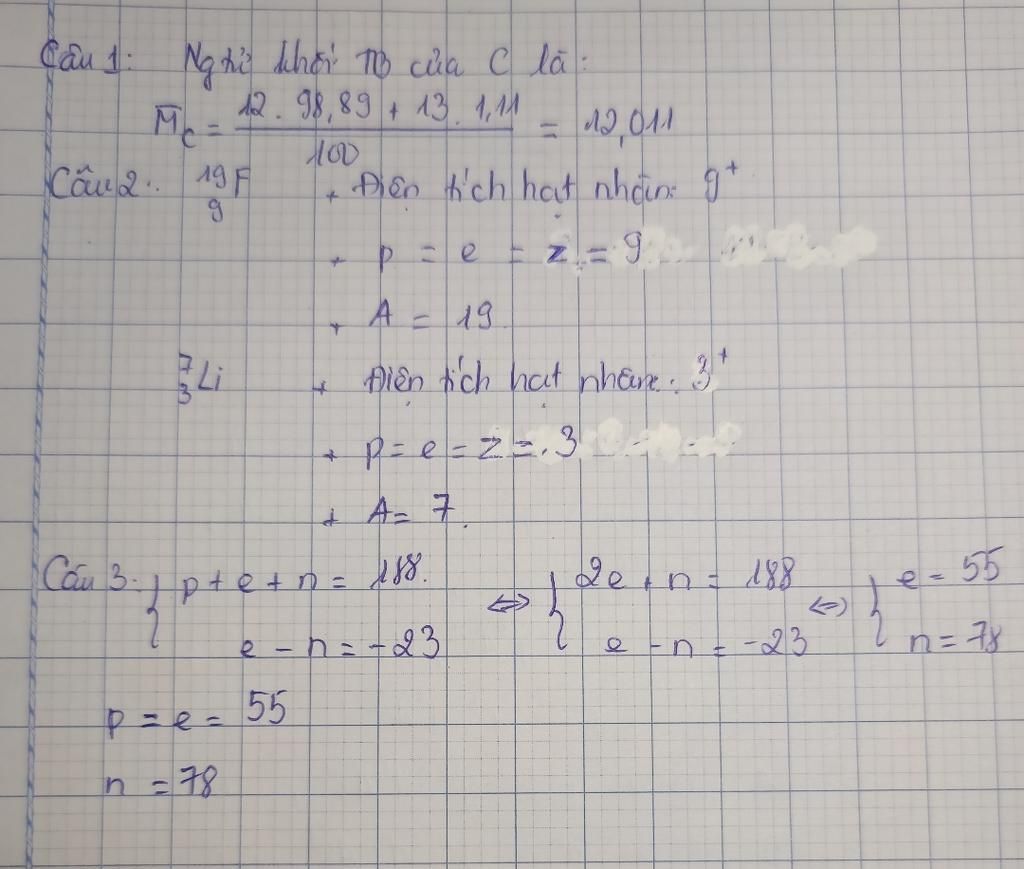 Câu 1: Ngtử khối TB của C là:
M̅c = 12 . 98,89 + 13 . 1,11 / 100 = 12,011
Câu 2: ¹⁹₉F + Điện tích hạt nhân: 9⁺
+ p = e = z = 9
+ A = 19
⁷₃Li + Điện tích hạt nhân: 3⁺
+ p = e = z = 3
+ A = 7.
Câu 3: { p + e + n = 188. ⇔ { 2e + n = 188 ⇔ { e = 55
e - n = -23 e - n = -23 n = 78
p = e = 55
n = 78